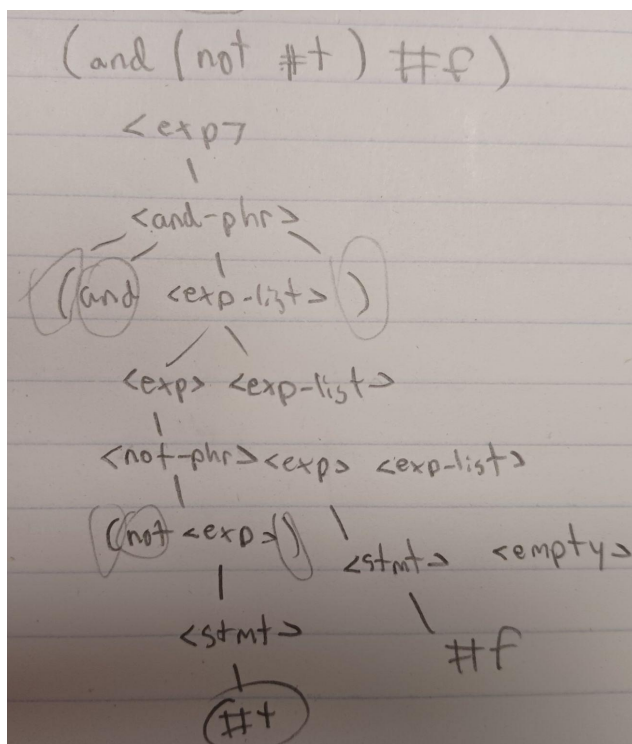 (and (not #t) #f)
<exp>
<and-phr>
(and <exp-list> )
<exp> <exp-list>
<not-phr> <exp> <exp-list>
(not <exp>) <stmt> <empty>
<stmt> #f
#t